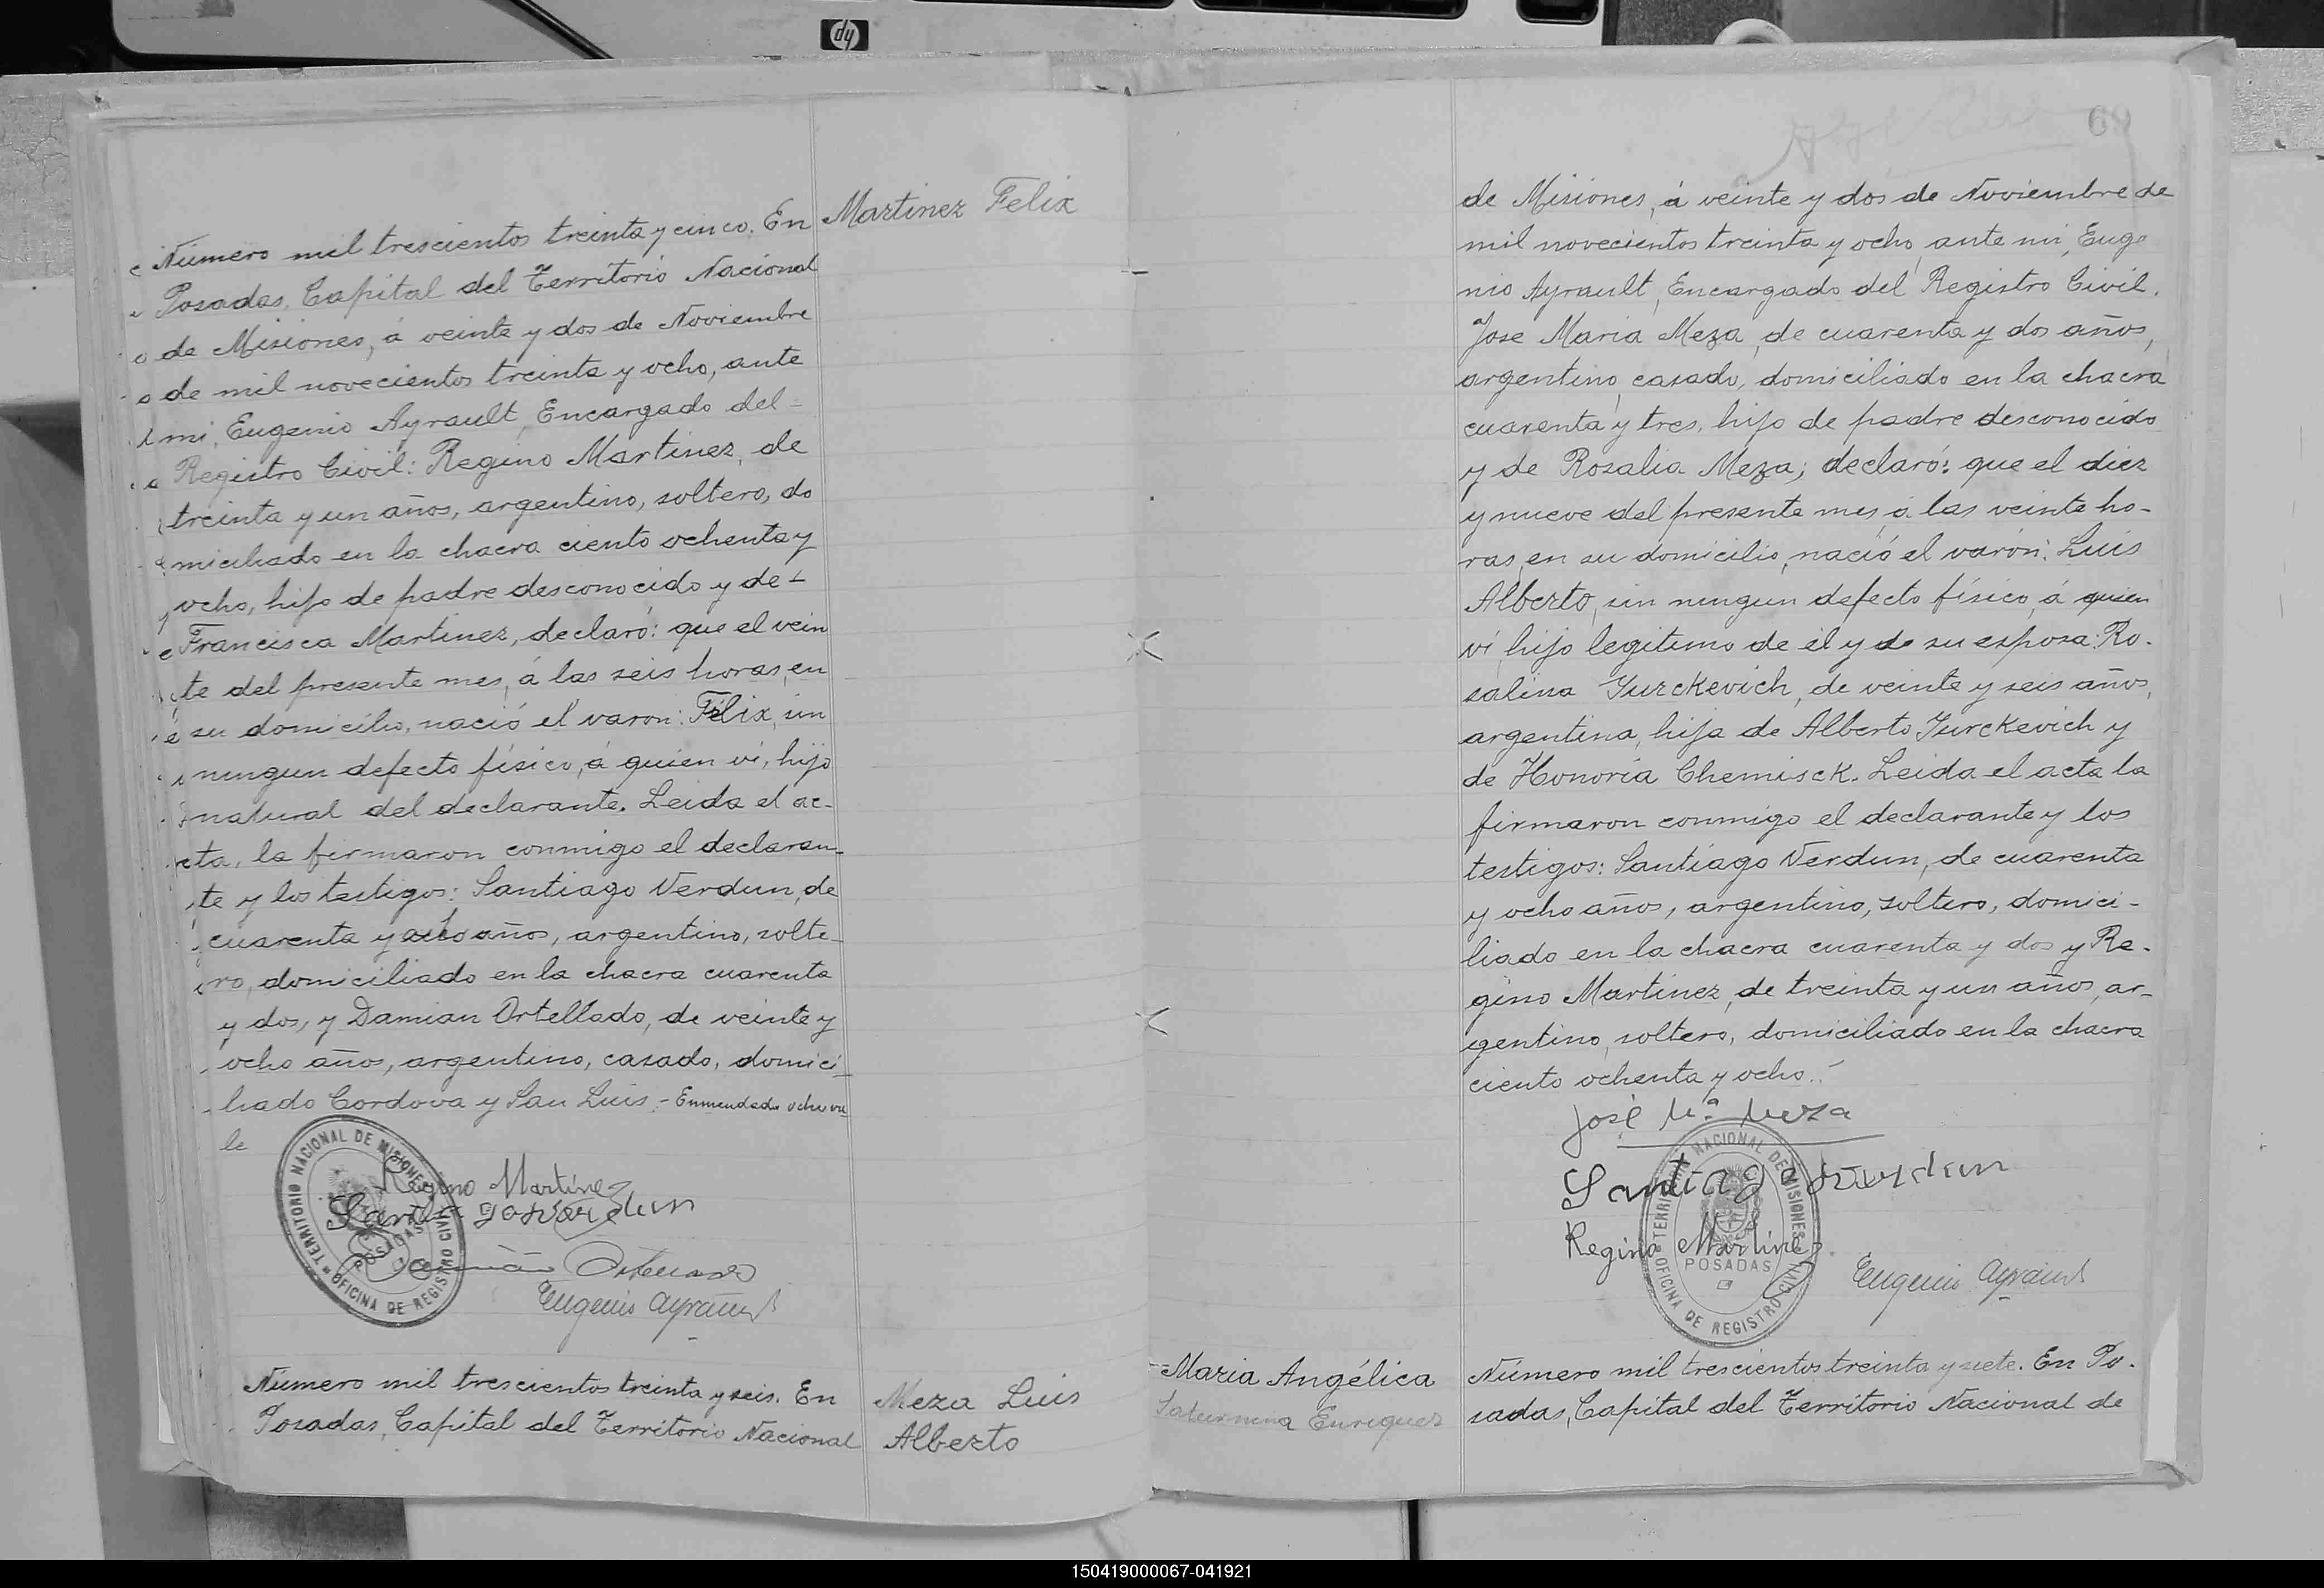 hp
Martinez Felix
Número mil trescientos treinta y cinco. En
Posadas, Capital del Territorio Nacional
de Misiones, á veinte y dos de Noviembre
de mil novecientos treinta y ocho, ante
mi, Eugenio Ayrault, Encargado del
Registro Civil: Regino Martinez, de
treinta y un años, argentino, soltero, do
miciliado en la chacra ciento ochenta y
ocho, hijo de padre desconocido y de
Francisca Martinez, declaró: que el vein
te del presente mes, á las seis horas, en
su domicilio, nació el varon: Félix, sin
ningun defecto físico, á quien ví, hijo
natural del declarante. Leida el ac-
ta, la firmaron conmigo el declaran-
te y los testigos: Santiago Verdun, de
cuarenta y ocho años, argentino, solte-
ro, domiciliado en la chacra cuarenta
y dos, y Damian Ortellado, de veinte y
ocho años, argentino, casado, domici-
liado Cordova y San Luis.- Enmendado ocho va
le
TERRITORIO NACIONAL DE MISIONES
POSADAS
OFICINA DE REGISTRO CIVIL
Regino Martinez
Santiago Verdun
Damián Ortellado
Eugenio Ayrault
Número mil trescientos treinta y seis. En
Posadas, Capital del Territorio Nacional
Meza Luis
Alberto
69
de Misiones, á veinte y dos de Noviembre de
mil novecientos treinta y ocho, ante mi, Euge
nio Ayrault, Encargado del Registro Civil.
Jose Maria Meza, de cuarenta y dos años,
argentino, casado, domiciliado en la chacra
cuarenta y tres, hijo de padre desconocido
y de Rosalia Meza; declaró: que el diez
y nueve del presente mes, á las veinte ho-
ras, en su domicilio, nació el varón: Luis
Alberto, sin ningun defecto físico, á quien
ví, hijo legitimo de él y de su esposa: Ro-
salina Yurckevich, de veinte y seis años,
argentina, hija de Alberto Yurckevich y
de Honoria Chemisck. Leida el acta la
firmaron conmigo el declarante y los
testigos: Santiago Verdun, de cuarenta
y ocho años, argentino, soltero, domici-
liado en la chacra cuarenta y dos y Re-
gino Martinez, de treinta y un años, ar-
gentino, soltero, domiciliado en la chacra
ciento ochenta y ocho.-
José Mª Meza
Santiago Verdun
Regino Martinez
Eugenio Ayrault
TERRITORIO NACIONAL DE MISIONES
POSADAS
OFICINA DE REGISTRO CIVIL
Maria Angélica
Saturnina Enriquez
Número mil trescientos treinta y siete. En Po-
sadas, Capital del Territorio Nacional de
150419000067-041921